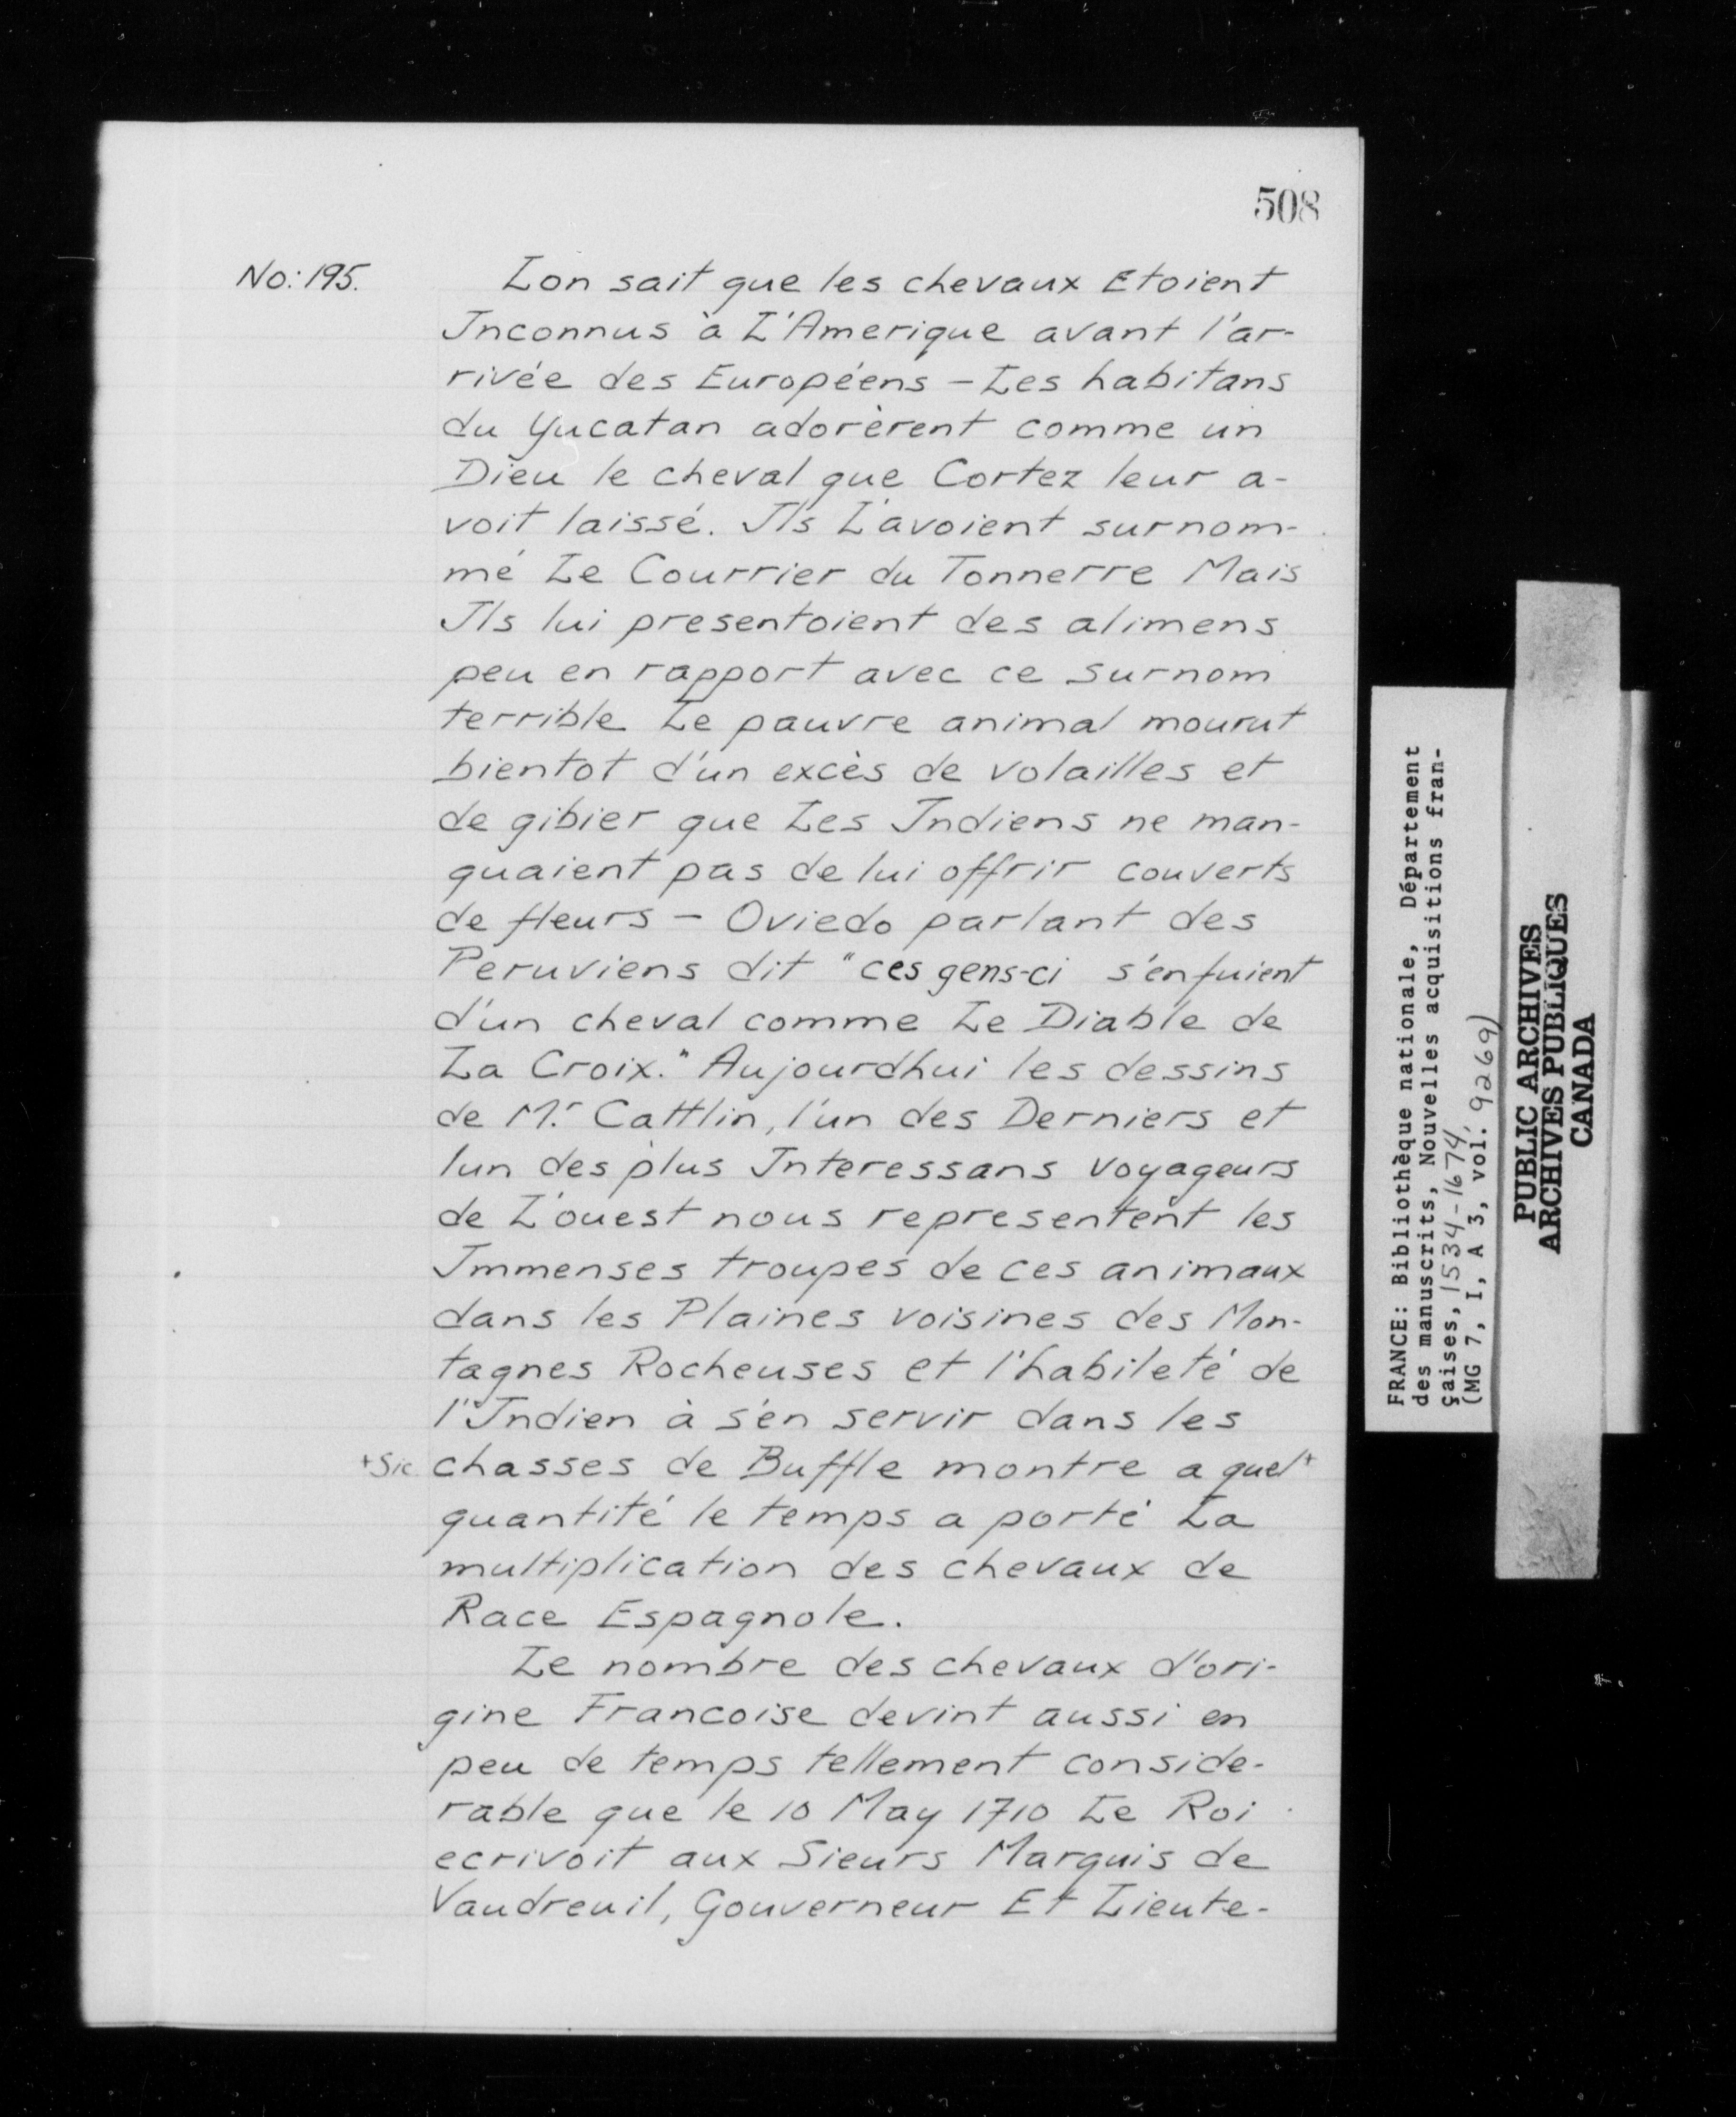 508
No: 195.
Lon sait que les chevaux Etoient
Inconnus à L'Amerique avant l'ar-
rivée des Européens - Les habitans
du Yucatan adorèrent comme un
Dieu le cheval que Cortez leur a-
voit laissé. Ils L'avoient surnom-
mé Le Courrier du Tonnerre Mais
Ils lui presentoient des alimens
peu en rapport avec ce surnom
terrible Le pauvre animal mourut
bientot d'un excès de volailles et
de gibier que Les Indiens ne man-
quaient pas de lui offrir couverts
de fleurs - Oviedo parlant des
Peruviens dit "ces gens-ci s'enfuient
d'un cheval comme Le Diable de
La Croix." Aujourdhui les dessins
de Mr. Cattlin, l'un des Derniers et
lun des plus Interessans voyageurs
de L'ouest nous representent les
Immenses troupes de ces animaux
dans les Plaines voisines des Mon-
tagnes Rocheuses et l'habileté de
l'Indien à s'en servir dans les
+Sic chasses de Buffle montre a quel+
quantité le temps a porté La
multiplication des chevaux de
Race Espagnole.
Le nombre des chevaux d'ori-
gine Francoise devint aussi en
peu de temps tellement conside-
rable que le 10 May 1710 Le Roi
ecrivoit aux Sieurs Marquis de
Vaudreuil, Gouverneur Et Lieute-
FRANCE: Bibliothèque nationale, Département
des manuscrits, Nouvelles acquisitions fran-
çaises, 1534-1674
(MG 7, I, A 3, vol. 9269)
PUBLIC ARCHIVES
ARCHIVES PUBLIQUES
CANADA